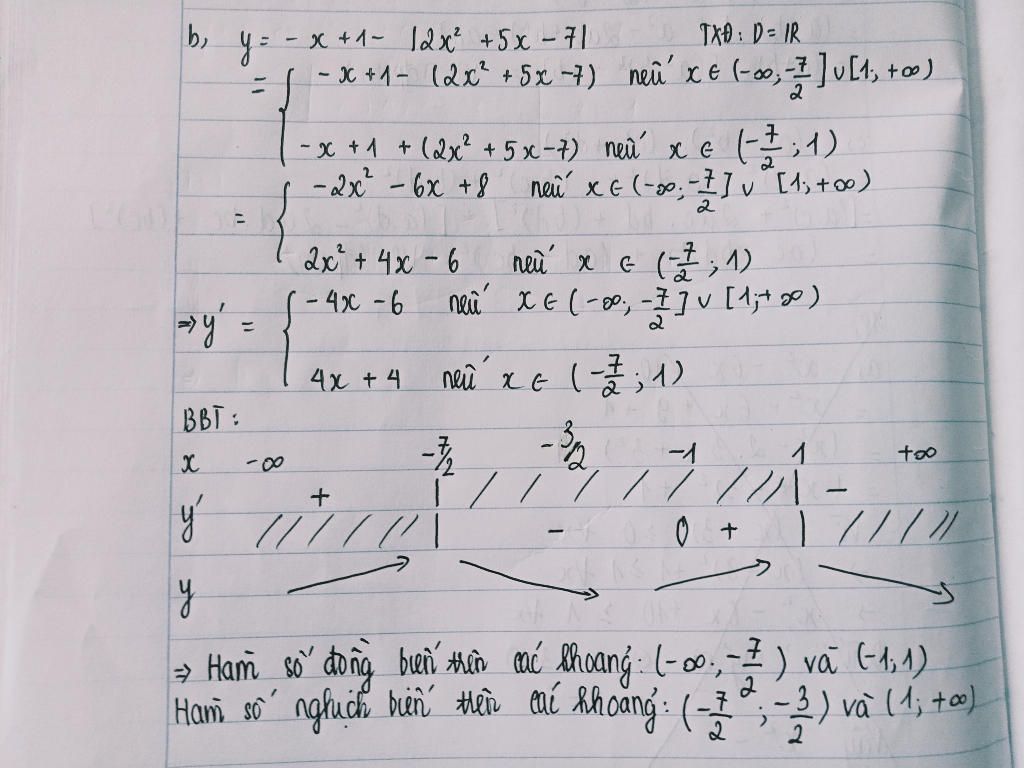 b, y = - x + 1 - |2x² + 5x - 7| TXĐ: D = IR
= { - x + 1 - (2x² + 5x - 7) nếu x ∈ (-∞; -7/2] ∪ [1; +∞)
- x + 1 + (2x² + 5x - 7) nếu x ∈ (-7/2; 1)
= { - 2x² - 6x + 8 nếu x ∈ (-∞; -7/2] ∪ [1; +∞)
2x² + 4x - 6 nếu x ∈ (-7/2; 1)
⇒ y' = { - 4x - 6 nếu x ∈ (-∞; -7/2] ∪ [1; +∞)
4x + 4 nếu x ∈ (-7/2; 1)
BBT:
x -∞ -7/2 -3/2 -1 1 +∞
y' + | / / / / / / / / | -
/ / / / / / | - 0 + | / / / / /
y
⇒ Hàm số đồng biến trên các khoảng: (-∞; -7/2) và (-1; 1)
Hàm số nghịch biến trên các khoảng: (-7/2; -3/2) và (1; +∞)